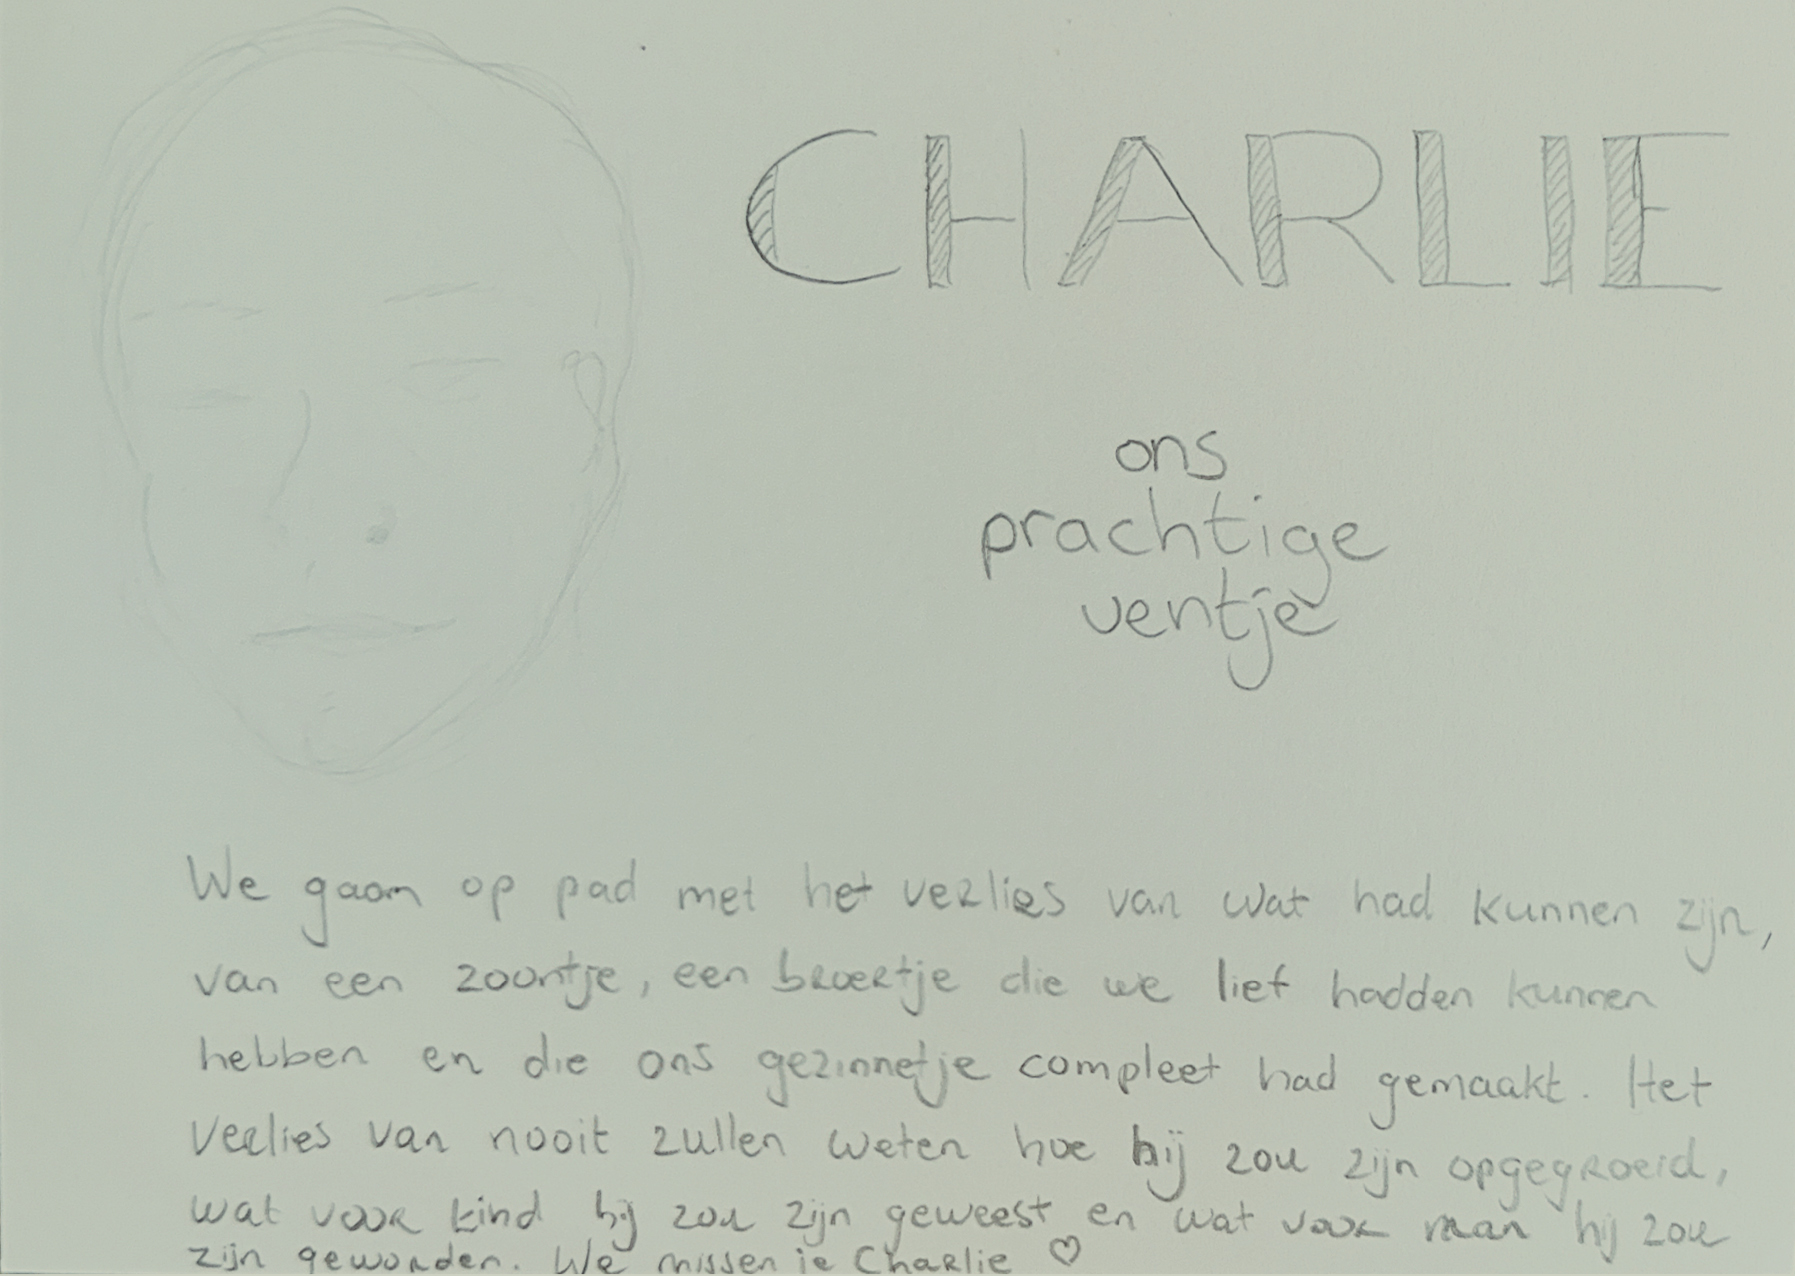 CHARLIE
ons
prachtige
ventje
We gaan op pad met het verlies van wat had kunnen zijn,
van een zoontje, een broertje die we lief hadden kunnen
hebben en die ons gezinnetje compleet had gemaakt. Het
verlies van nooit zullen weten hoe hij zou zijn opgegroeid,
wat voor kind hij zou zijn geweest en wat voor man hij zou
zijn geworden. We missen je Charlie ♡